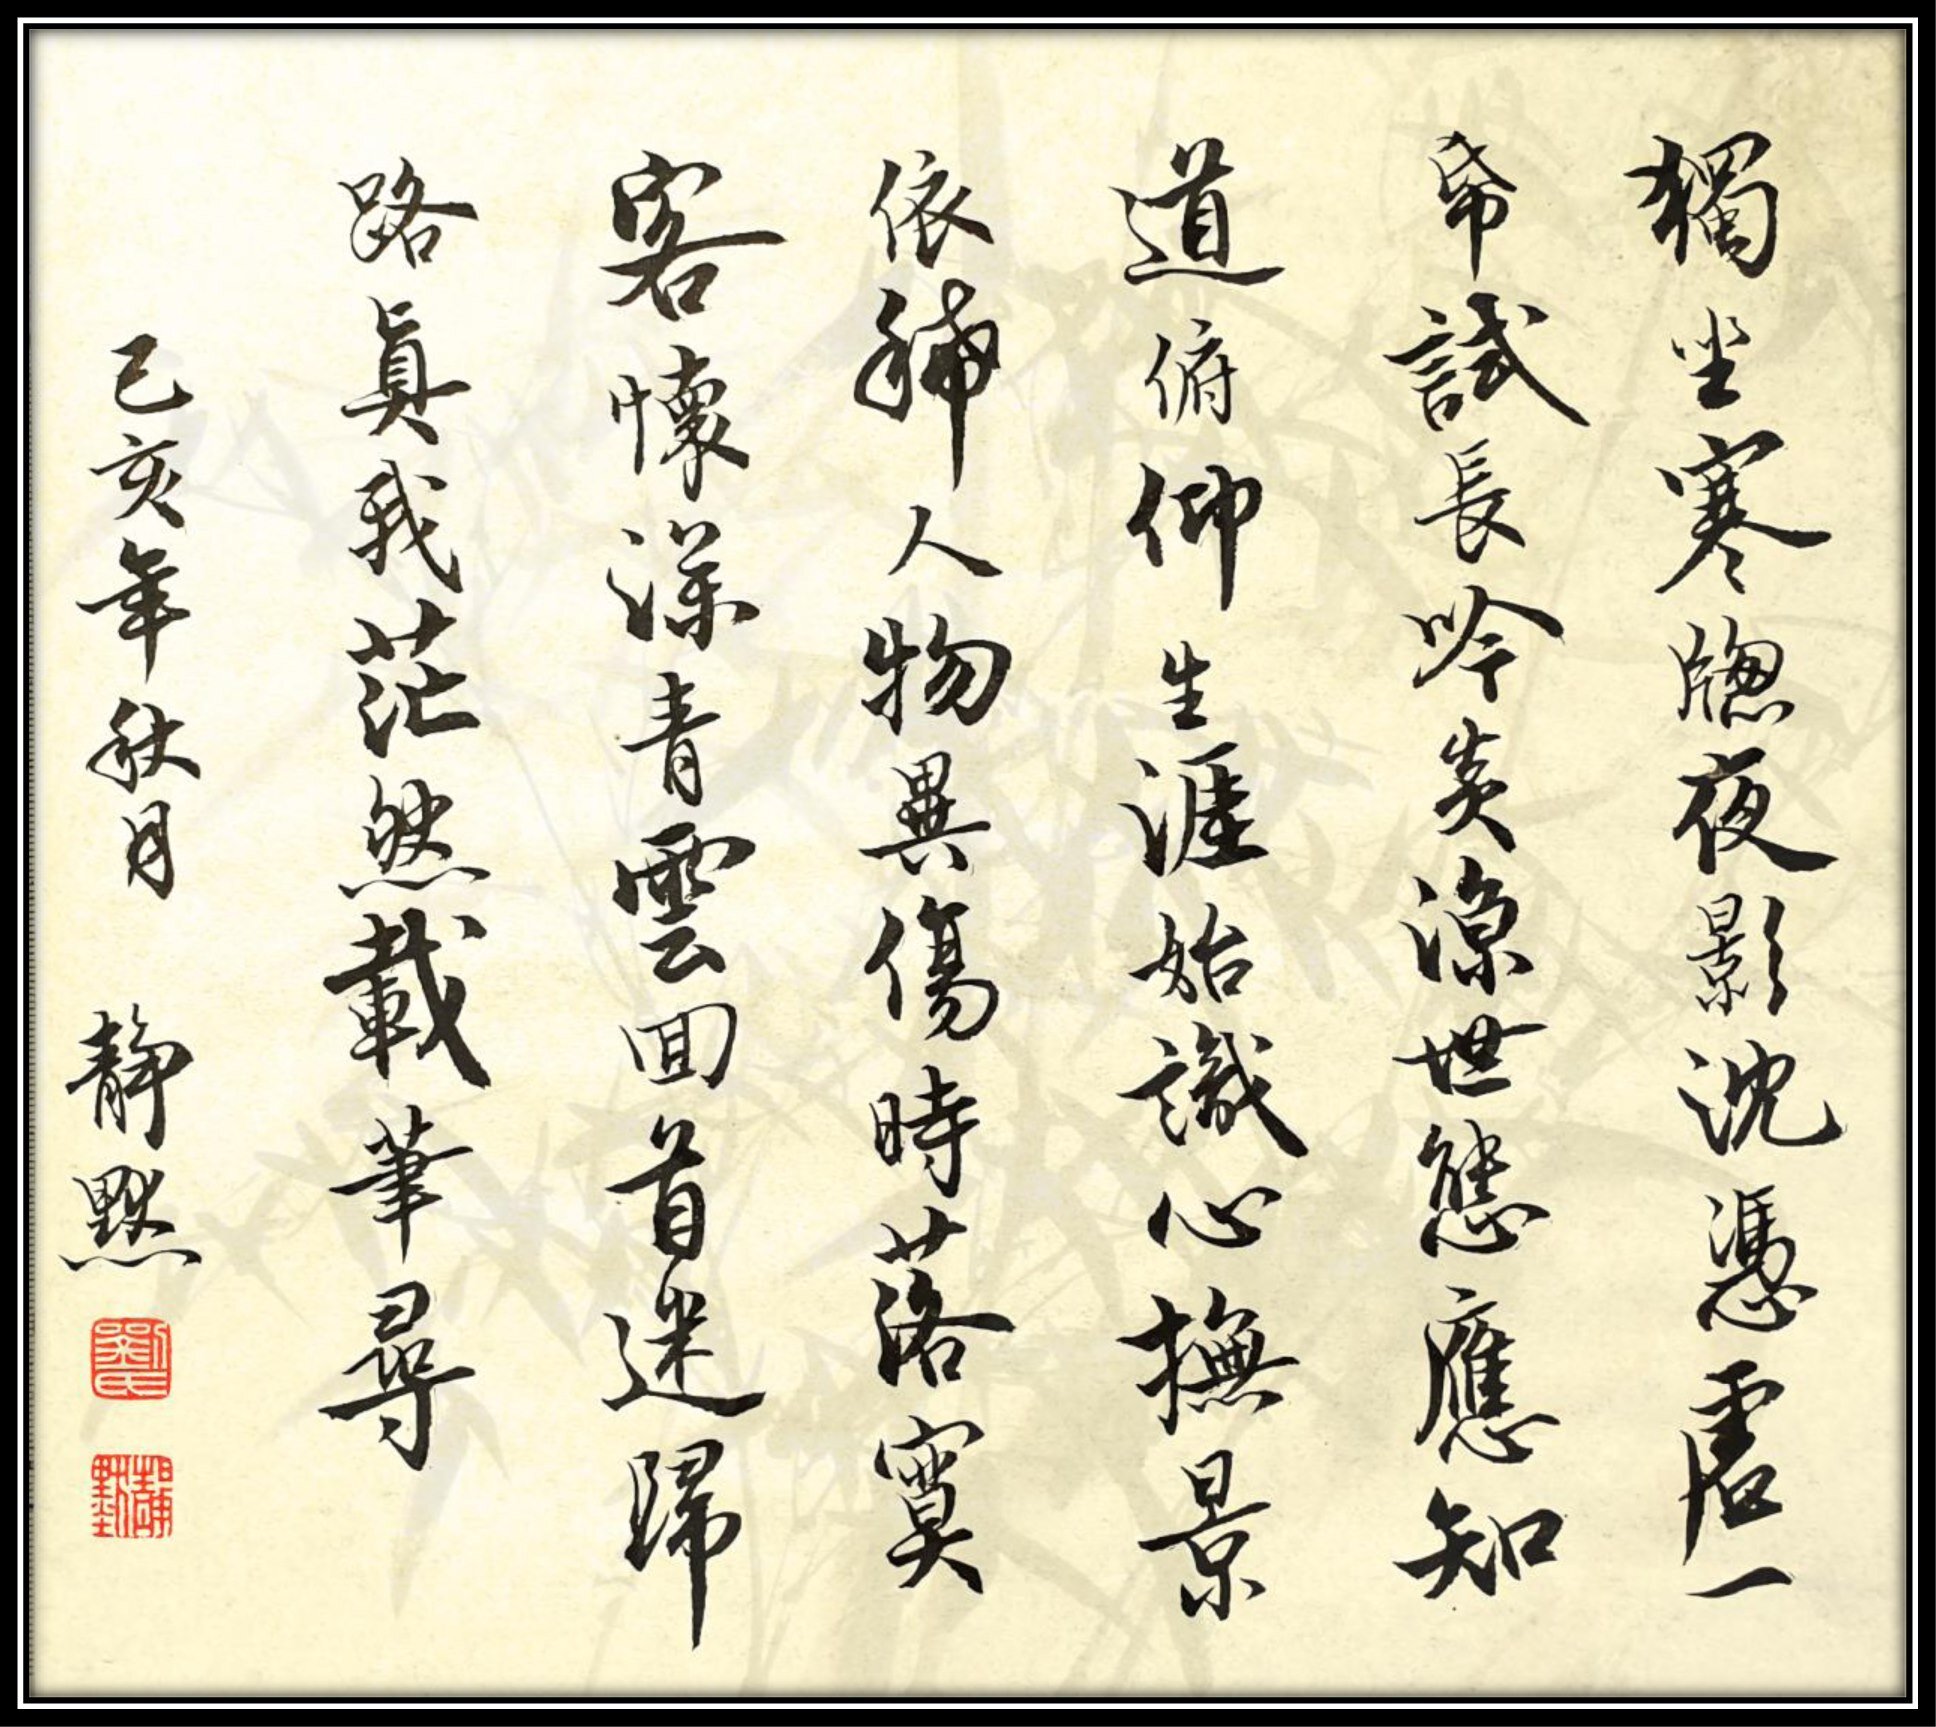 獨坐寒牕夜影沈憑虛一
帋試長吟炎涼世態應知
道俯仰生涯始識心撫景
依稀人物異傷時落寞
客懷深青雲囬首迷歸
路眞我茫然載筆尋
己亥年秋月 靜默
劉氏
靜默